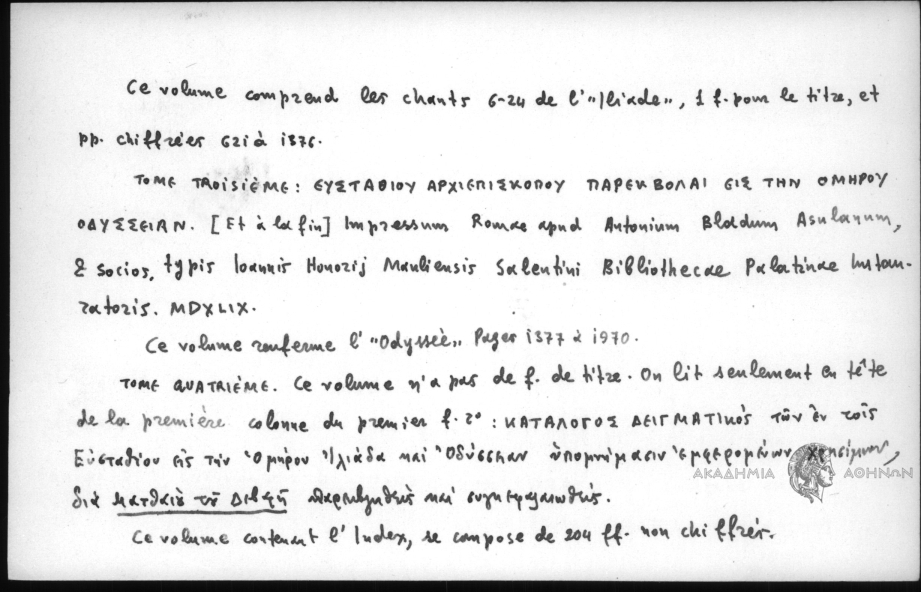 Ce volume comprend les chants 6-24 de l'"Iliade", 1 f. pour le titre, et
pp. chiffrées 621 à 1376.
TOME TROISIÈME: ΕΥΣΤΑΘΙΟΥ ΑΡΧΙΕΠΙΣΚΟΠΟΥ ΠΑΡΕΚΒΟΛΑΙ ΕΙΣ ΤΗΝ ΟΜΗΡΟΥ
ΟΔΥΣΣΕΙΑΝ. [Et à la fin] Impressum Romae apud Antonium Bladum Asulanum,
& socios, typis Ioannis Honorij Manliensis Salentini Bibliothecae Palatinae Instau-
ratoris. MDXLIX.
Ce volume renferme l'"Odyssée„ Pages 1377 à 1970.
TOME QUATRIÈME. Ce volume n'a pas de f. de titre. On lit seulement en tête
de la première colonne du premier f. 2º: ΚΑΤΑΛΟΓΟΣ ΔΕΙΓΜΑΤΙΚός τῶν ἐν τοῖς
Εὐσταθίου εἰς τὴν Ὁμήρου Ἰλιάδα καὶ Ὀδύσσειαν ὑπομνήμασιν ἐμφερομένων χρησίμων,
διὰ Ματθαίου τοῦ Δεβαρῆ καὶ συγκεφαλαιωθείς.
Ce volume contenant l'Index, se compose de 204 ff. non chiffrés.
ΑΚΑΔΗΜΙΑ ΑΘΗΝΩΝ